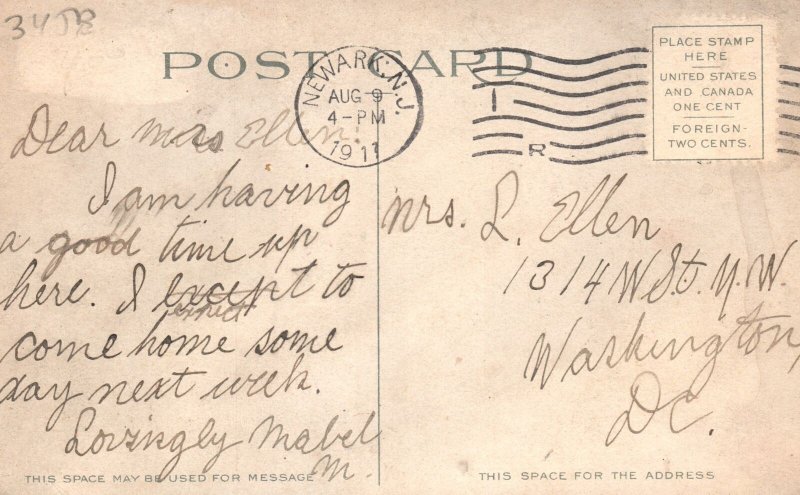 34
POST CARD
NEWARK, N.J.
AUG 9
4-PM
1911
I
R
PLACE STAMP
HERE
UNITED STATES
AND CANADA
ONE CENT
FOREIGN-
TWO CENTS.
Dear Mrs Ellen:
I am having
a good time up
here. I except to
expect
come home some
day next week.
Lovingly Mabel
M.
THIS SPACE MAY BE USED FOR MESSAGE
Mrs. L. Ellen
1314 W St. N.W.
Washington,
DC.
THIS SPACE FOR THE ADDRESS